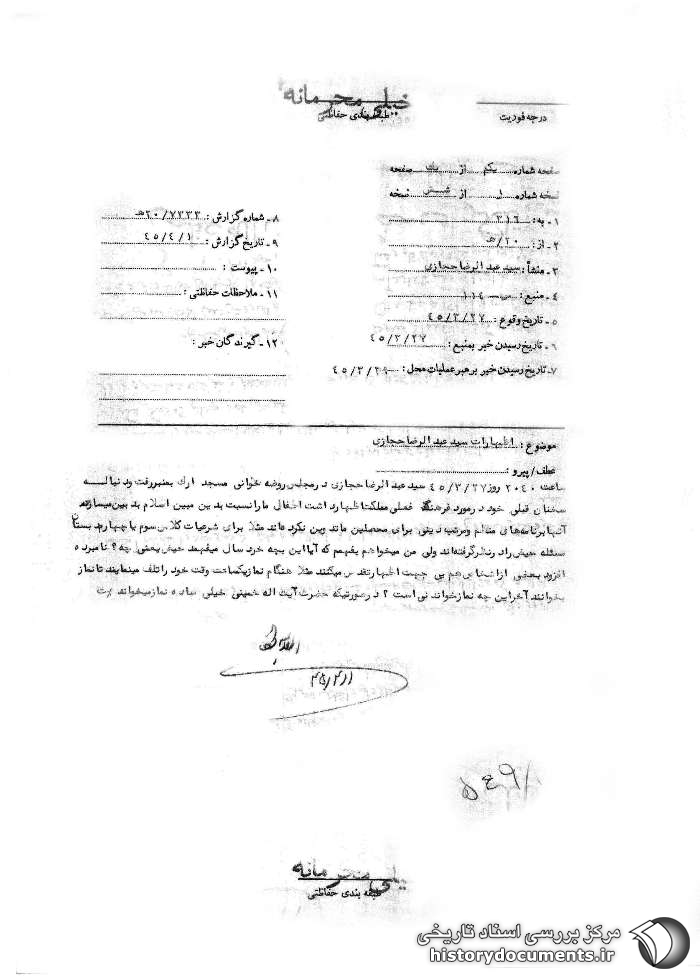 خیلی محرمانه
طبقه بندی حفاظتی
درجه فوریت
صفحه شماره یکم از یک صفحه
نسخه شماره ۱ از شش نسخه
۱ - به : ۳۱٦
۲ - از : ۲۰/هـ
۳ - منشأ : سید عبد الرضا حجازی
٤ - منبع : ۱۱٤
۵ - تاریخ وقوع : ٤۵/۳/۲۷
٦ - تاریخ رسیدن خبر بمنبع : ٤۵/۳/۲۷
۷ - تاریخ رسیدن خبر برهبر عملیات محل : ٤۵/۳/۲۹
۸ - شماره گزارش : ۲۰/۷۲۳۳هـ
۹ - تاریخ گزارش : ٤۵/٤/۱
۱۰ - پیوست :
۱۱ - ملاحظات حفاظتی :
۱۲ - گیرندگان خبر :
موضوع : اظهارات سید عبد الرضا حجازی
عطف / پیرو :
ساعت ۲۰٤۰ روز ٤۵/۳/۲۷ سید عبد الرضا حجازی در مجلس روضه خوانی مسجد ارک بمنبر رفت و دنباله
سخنان قبلی خود در مورد فرهنگ فعلی مملکت اظهار داشت اطفال ما را نسبت بدین مبین اسلام بدبین میسازند
آنها برنامه‌های منظم و مرتب دینی برای محصلین ما تدوین نکرده‌اند مثلا برای شرعیات کلاس سوم یا چهارم دبستان
مسئله حیض را در نظر گرفته‌اند ولی من میخواهم بفهمم که آیا این بچه خرد سال میفهمد حیض یعنی چه ؟ نامبرده
افزود بعضی از اشخاص هم بی جهت اظهار تقدس میکنند مثلا هنگام نماز یکساعت وقت خود را تلف مینمایند تا نماز
بخوانند آخر این چه نماز خواندنی است ؟ در صورتیکه حضرت آیت اله خمینی خیلی ساده نماز میخواند
٤۵/٤/۱
۵٤۹/
خیلی محرمانه
طبقه بندی حفاظتی
مرکز بررسی اسناد تاریخی
historydocuments.ir